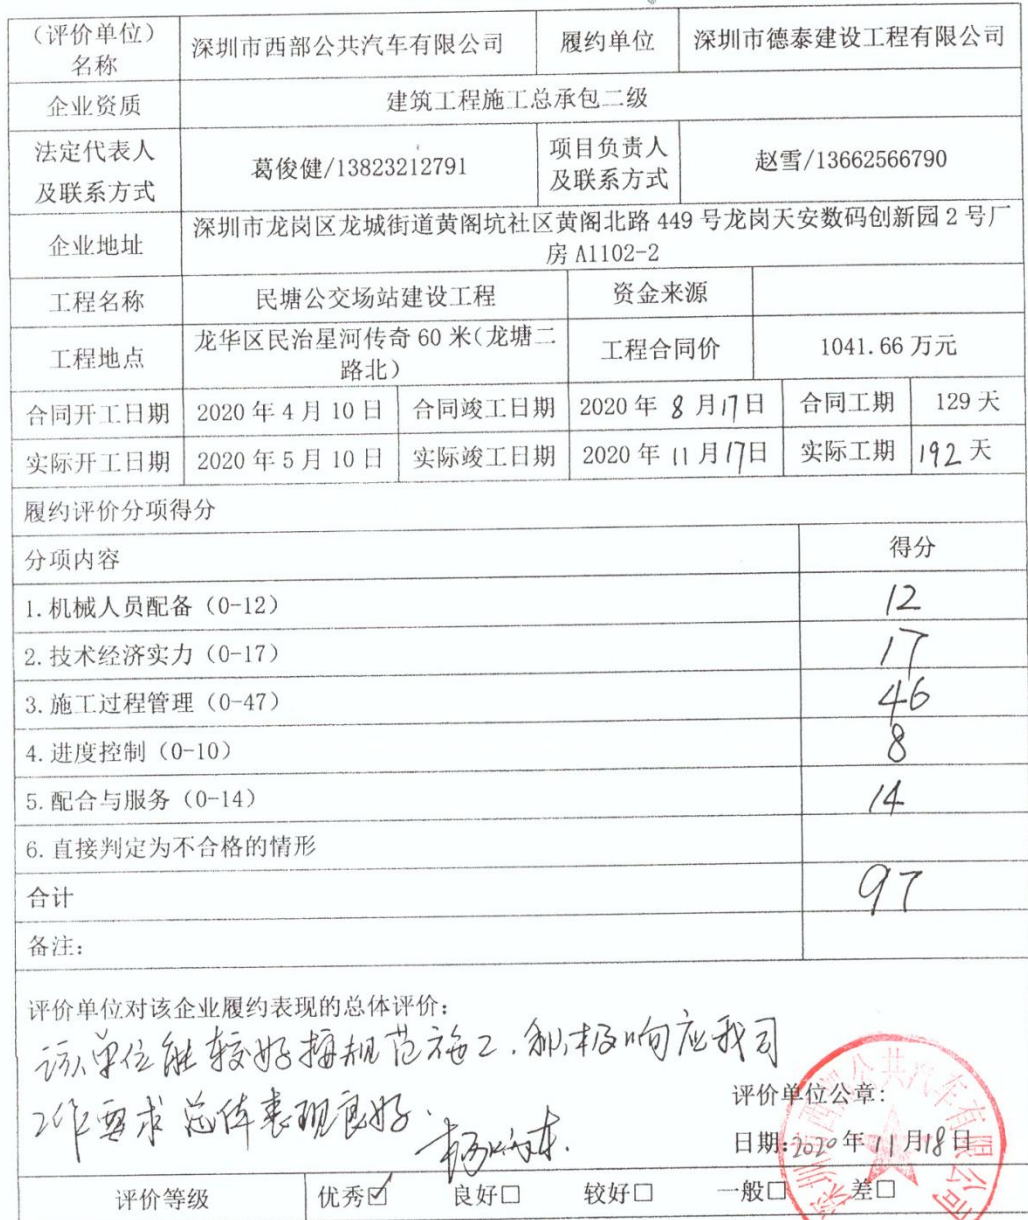 （评价单位）
名称
深圳市西部公共汽车有限公司
履约单位
深圳市德泰建设工程有限公司
企业资质
建筑工程施工总承包二级
法定代表人
及联系方式
葛俊健/13823212791
项目负责人
及联系方式
赵雪/13662566790
企业地址
深圳市龙岗区龙城街道黄阁坑社区黄阁北路 449 号龙岗天安数码创新园 2 号厂
房 A1102-2
工程名称
民塘公交场站建设工程
资金来源
工程地点
龙华区民治星河传奇 60 米(龙塘二
路北)
工程合同价
1041.66 万元
合同开工日期
2020 年 4 月 10 日
合同竣工日期
2020 年 8 月17日
合同工期
129 天
实际开工日期
2020 年 5 月 10 日
实际竣工日期
2020 年 11 月17日
实际工期
192 天
履约评价分项得分
分项内容
得分
1.机械人员配备（0-12）
12
2.技术经济实力（0-17）
17
3.施工过程管理（0-47）
46
4.进度控制（0-10）
8
5.配合与服务（0-14）
14
6.直接判定为不合格的情形
合计
97
备注:
评价单位对该企业履约表现的总体评价:
该单位能较好按规范施工.积极响应我司
工作要求 总体表现良好.
评价单位公章:
日期:2020年 11 月18日
深圳市西部公共汽车有限公司
评价等级
优秀☑ 良好□ 较好□ 一般□ 差□